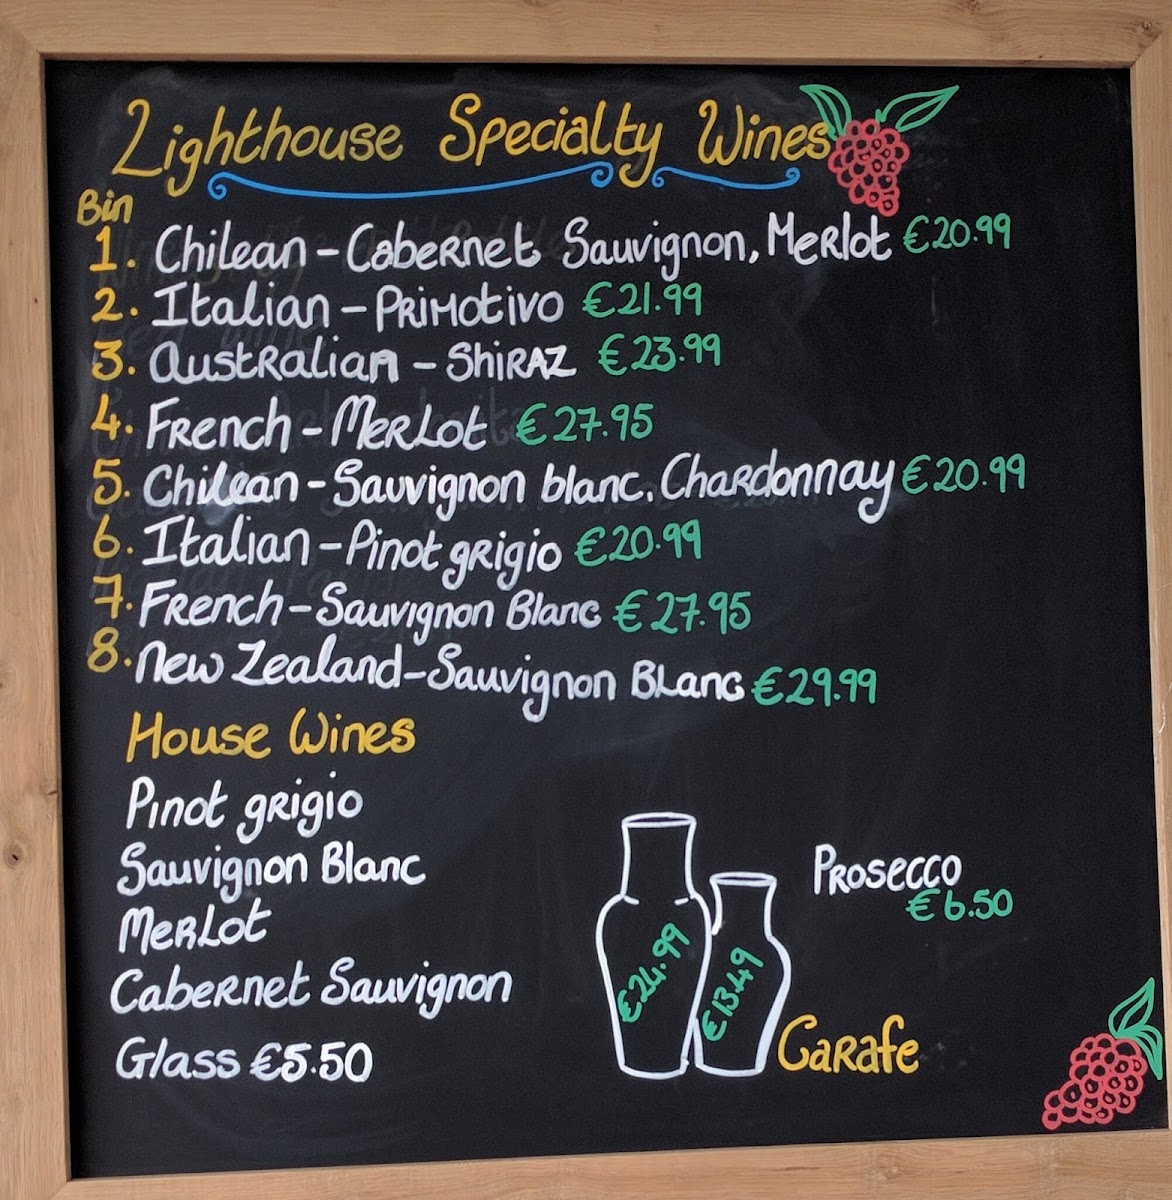 Lighthouse Specialty Wines
Bin
1. Chilean - Cabernet Sauvignon, Merlot €20.99
2. Italian - Primotivo €21.99
3. Australian - Shiraz €23.99
4. French - Merlot €27.95
5. Chilean - Sauvignon blanc, Chardonnay €20.99
6. Italian - Pinot grigio €20.99
7. French - Sauvignon Blanc €27.95
8. New Zealand - Sauvignon Blanc €29.99
House Wines
Pinot grigio
Sauvignon Blanc
Merlot
Cabernet Sauvignon
Glass €5.50
€24.99
€13.49
Carafe
Prosecco
€6.50